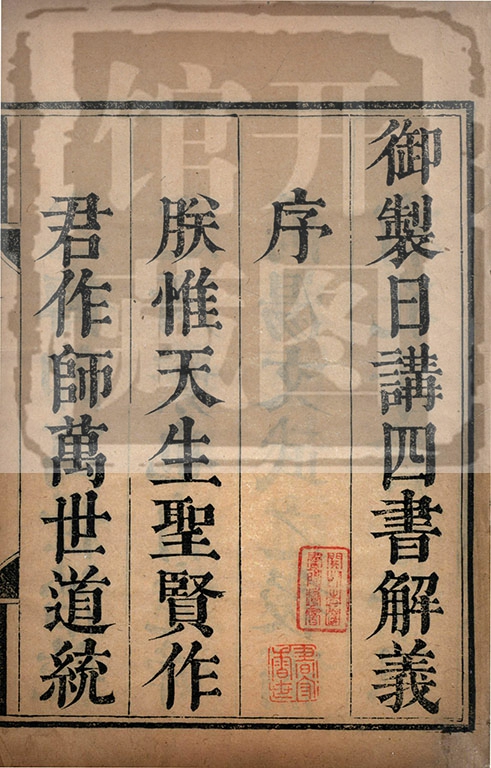 御製日講四書解義
序
朕惟天生聖賢作
君作師萬世道統